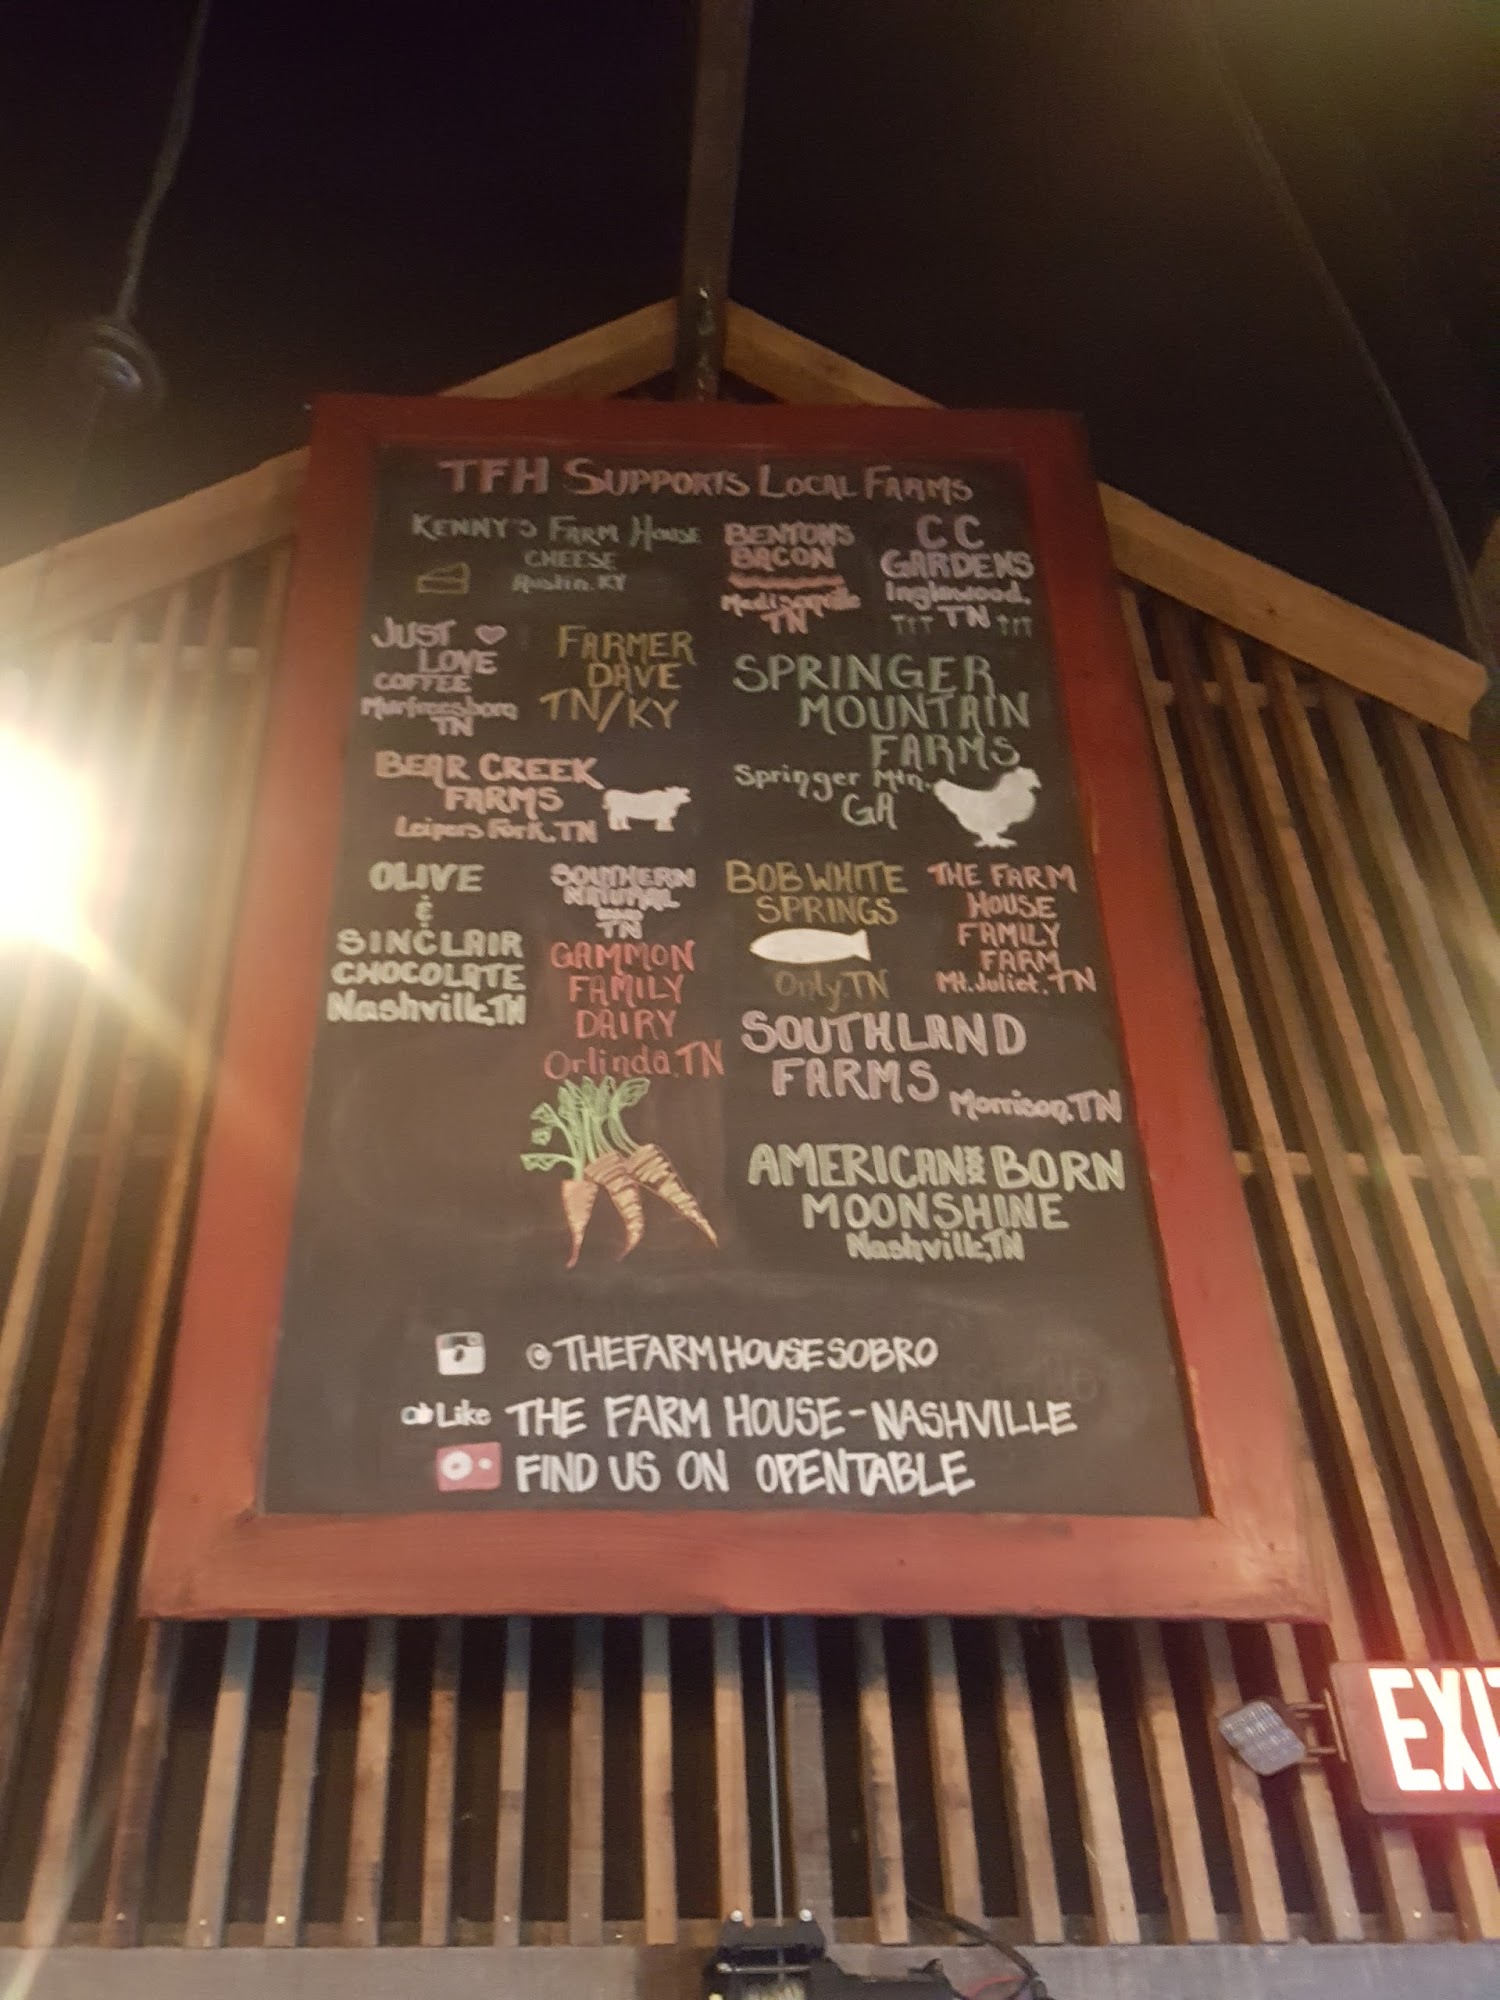 TFH SUPPORTS LOCAL FARMS
KENNY'S FARM HOUSE
CHEESE
Austin, KY
BENTON'S
BACON
Madisonville
TN
C C
GARDENS
Inglewood,
TN
JUST
LOVE
COFFEE
Murfreesboro
TN
FARMER
DAVE
TN/KY
SPRINGER
MOUNTAIN
FARMS
Springer Mtn.
GA
BEAR CREEK
FARMS
Leipers Fork, TN
OLIVE
&
SINCLAIR
CHOCOLATE
Nashville, TN
SOUTHERN
NATURAL
TN
GAMMON
FAMILY
DAIRY
Orlinda, TN
BOB WHITE
SPRINGS
Only, TN
THE FARM
HOUSE
FAMILY
FARM
Mt. Juliet, TN
SOUTHLAND
FARMS
Morrison, TN
AMERICAN BORN
MOONSHINE
Nashville, TN
@THEFARMHOUSESOBRO
Like THE FARM HOUSE-NASHVILLE
FIND US ON OPENTABLE
EXIT